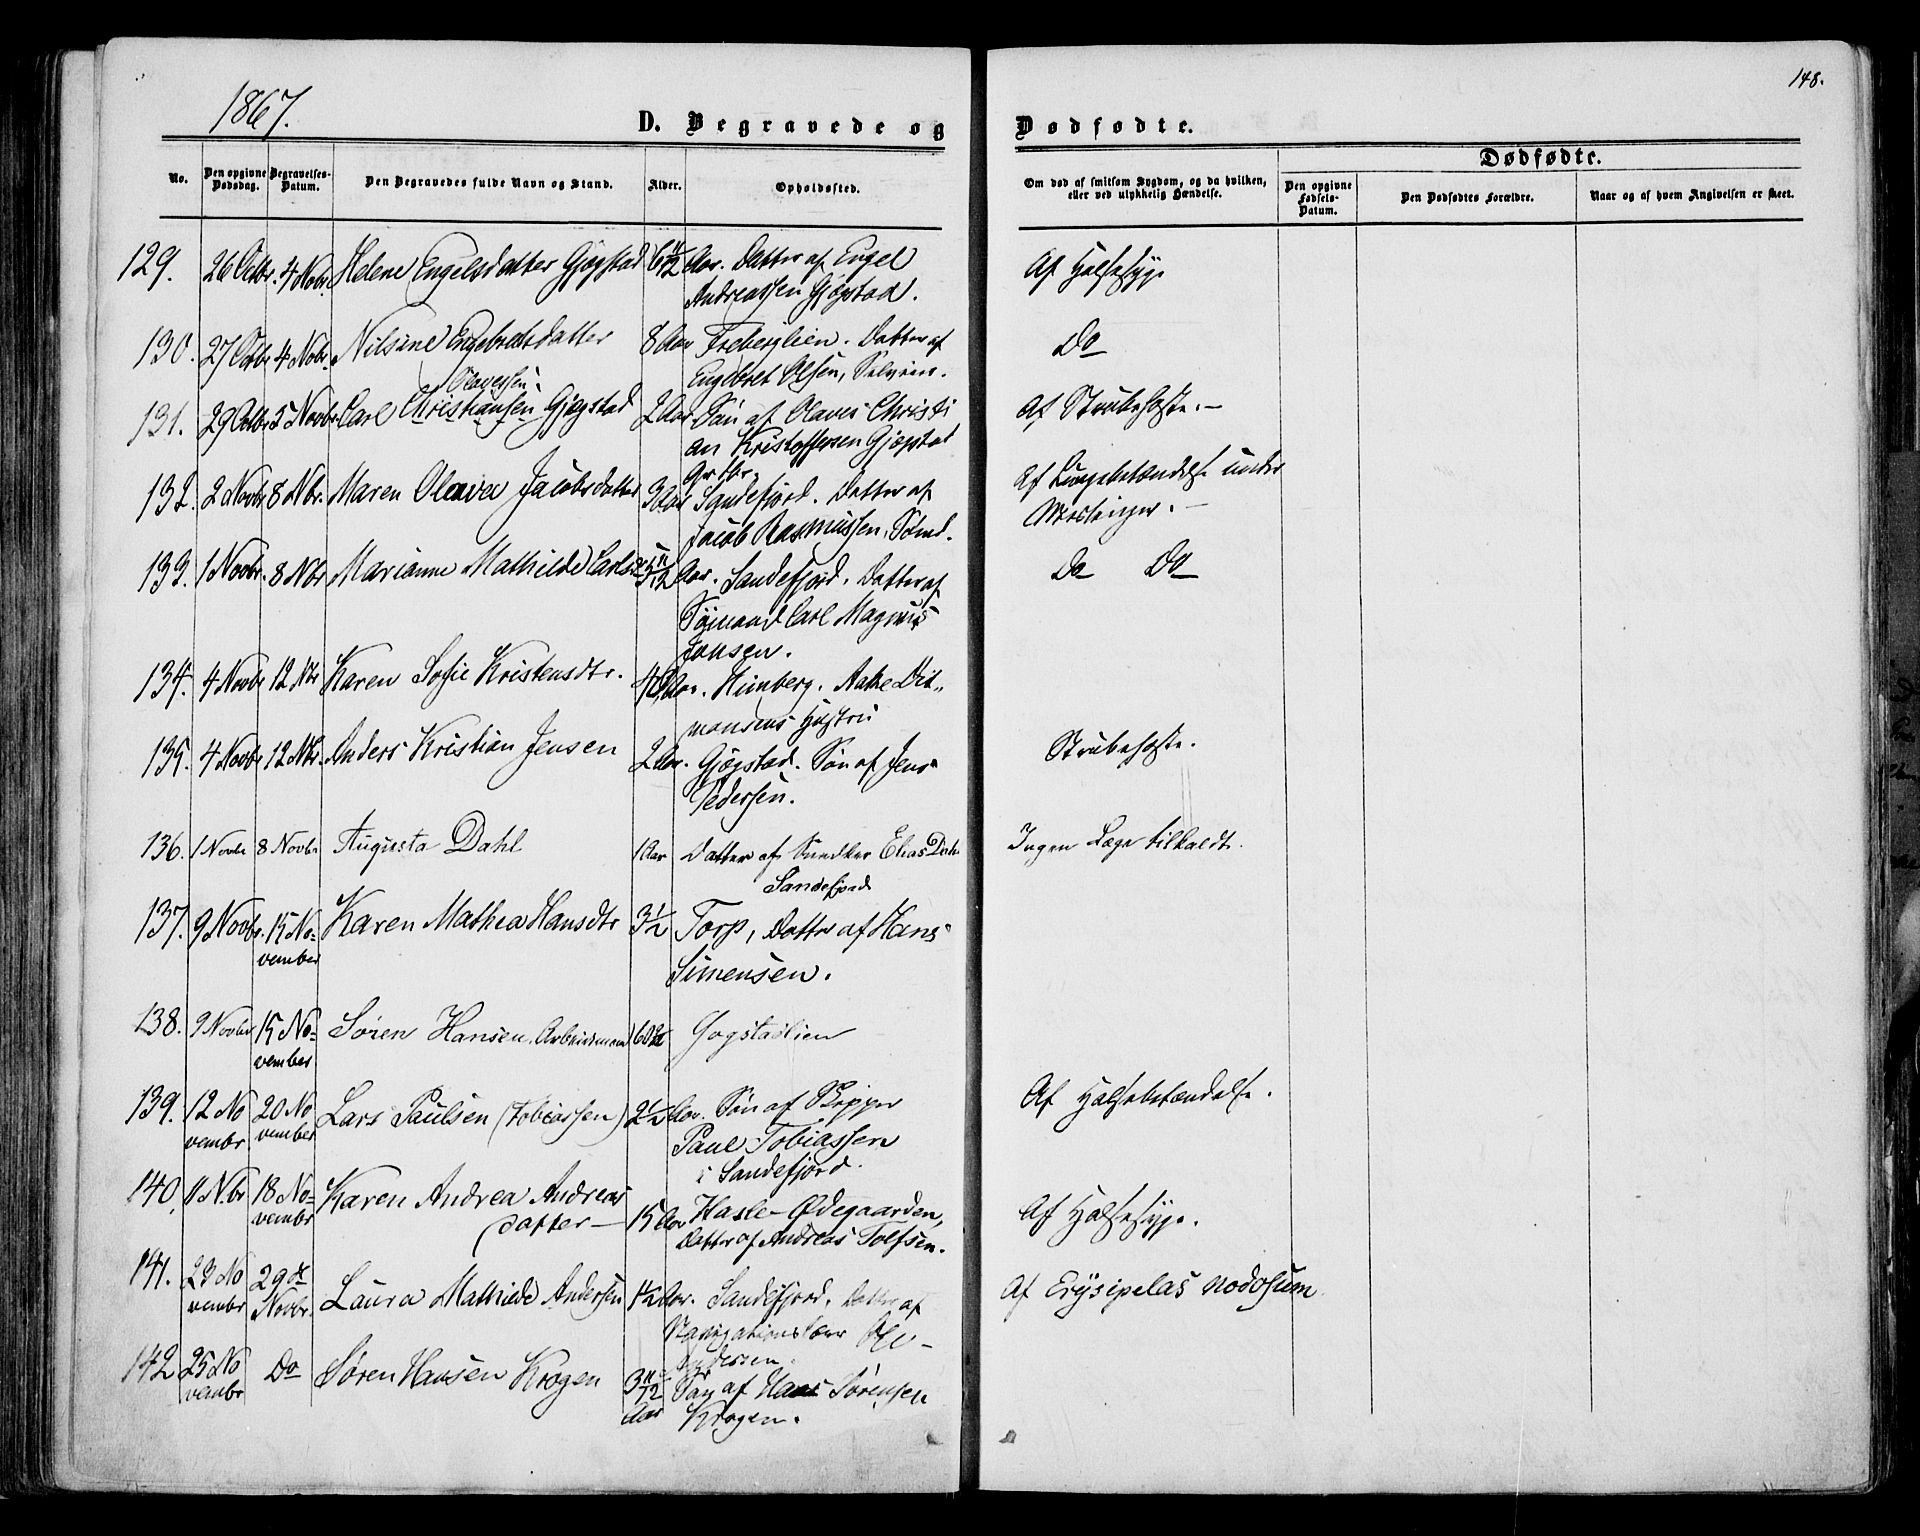 1867.
148.
D. Begravede og Dødfødte.
Dødfødte.
No.
Den opgivne Dødsdag.
Begravelses-Datum.
Den Begravedes fulde Navn og Stand.
Alder.
Opholdssted.
Om død af smitsom Sygdom, og da hvilken, eller ved ulykkelig Hændelse.
Den opgivne Fødsels-Datum.
Den Dødfødtes Forældre.
Naar og af hvem Angivelsen er skeet.
129. 26 Octbr. 4 Novbr. Helene Engelsdatter Gjøgstad 6 11/12 Aar. Datter af Engel Af Halsesyge
Andreassen Gjøgstad.
130. 27 Octbr 4 Novbr. Nilsine Engebretsdatter 8 Aar Freberglien. Datter af Do
Engebret Olsen,
Olavessen
131. 29 Octbr 5 Novbr Carl Christiansen Gjøgstad 2 Aar Søn af Olaves Christi Af Strubehoste. —
an Kristoffersen Gjøgstad
132. 2 Novbr 8 Nbr. Maren Olava Jacobsdatter 3 Aar Sandefjord. Datter af Af Lungebetændelse under
Jacob Rasmussen, Sømd. Meslinger. —
133. 1 Novbr. 8 Nbr Marianne Mathilde Carlsd 3 11/12 Aar. Sandefjord. Datter af Do Do
Sømand Carl Magnus
Jonsen.
134. 4 Novbr 12 Nbr Karen Sofie Kristensdtr. Aar. Himberg.
Hustru
135. 4 Novbr 12 Nbr. Anders Kristian Jensen 2 Aar. Gjøgstad. Søn af Jens Strubehoste.
Pedersen.
136. 1 Novbr 8 Novbr Augusta Dahl 1 Aar Datter af Snedker Elias Dahl Ingen Læge tilkaldt.
Sandefjord
137. 9 Novbr. 15 No- Karen Mathea Hansdtr 3 1/2 Torp, Datter af Hans
vember Simensen.
138. 9 Novbr 15 No- Søren Hansen, Arbeidsmand 60 Gogstadlien
vember
139. 12 No 20 No Lars Paulsen (Tobiassen) 2 1/2 Aar. Søn af Skipper Af Halsebetændelse.
vembr vember Paul Tobiassen
i Sandefjord.
140. 11 N.br 18 No- Karen Andrea Andreas
vembr datter — 15 Aar Hasle-Ødegaarden, Af Halsesyge.
Datter af Andreas Tolfsen.
141. 23 No 29de Laura Mathilde Andersen 1 1/2 Aar. Sandefjord. Datter af Af Erysipelas nodosum.
vembr Novbr. Navigationslærer
Andersen.
142 25 No Do Søren Hansen Krogen 3 11/12 Søn af Hans Sørensen
vembr Aar Krogen.